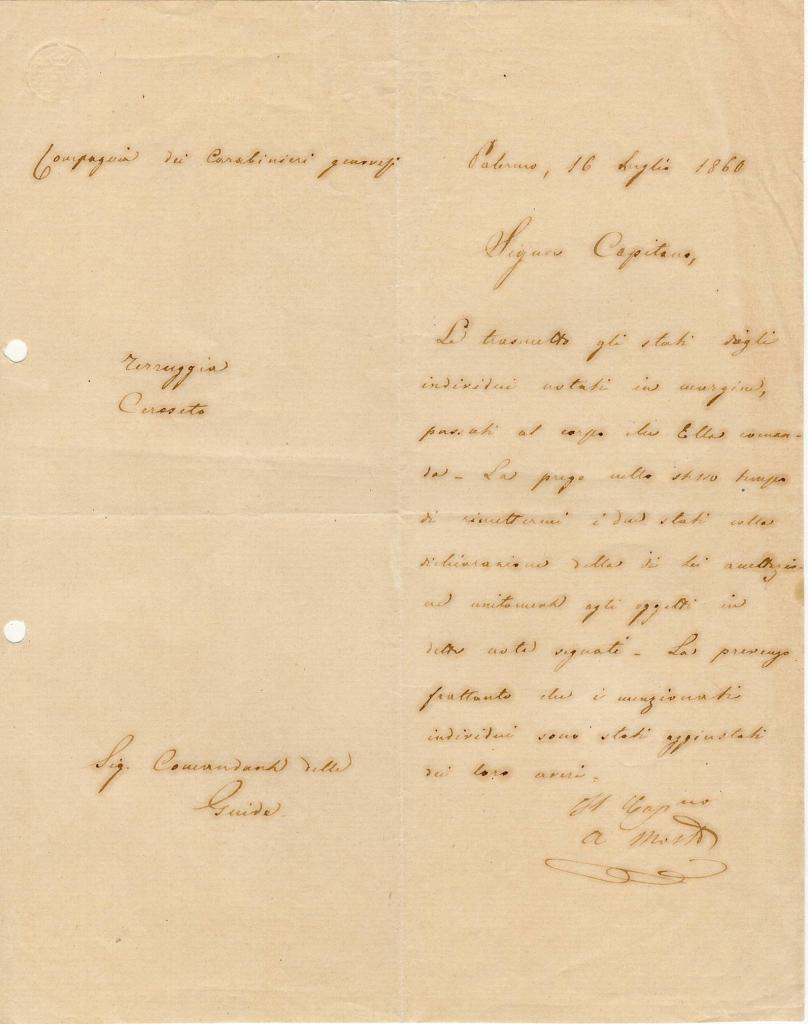 Compagnia dei Carabinieri genovesi
Palermo, 16 Luglio 1860
Signor Capitano,
Terruggia
Cereseto
Le trasmetto gli stati degli
individui notati in margine,
passati al corpo che Ella coman-
da - La prego nello stesso tempo
di rimettermi i due stati colla
dichiarazione della di lei accettazio-
ne unitamente agli oggetti in
dette note segnati - La prevengo
frattanto che i menzionati
individui sono stati aggiustati
dei loro averi.
Sig. Comandante delle
Guide.
Il Cap no
A Mosto